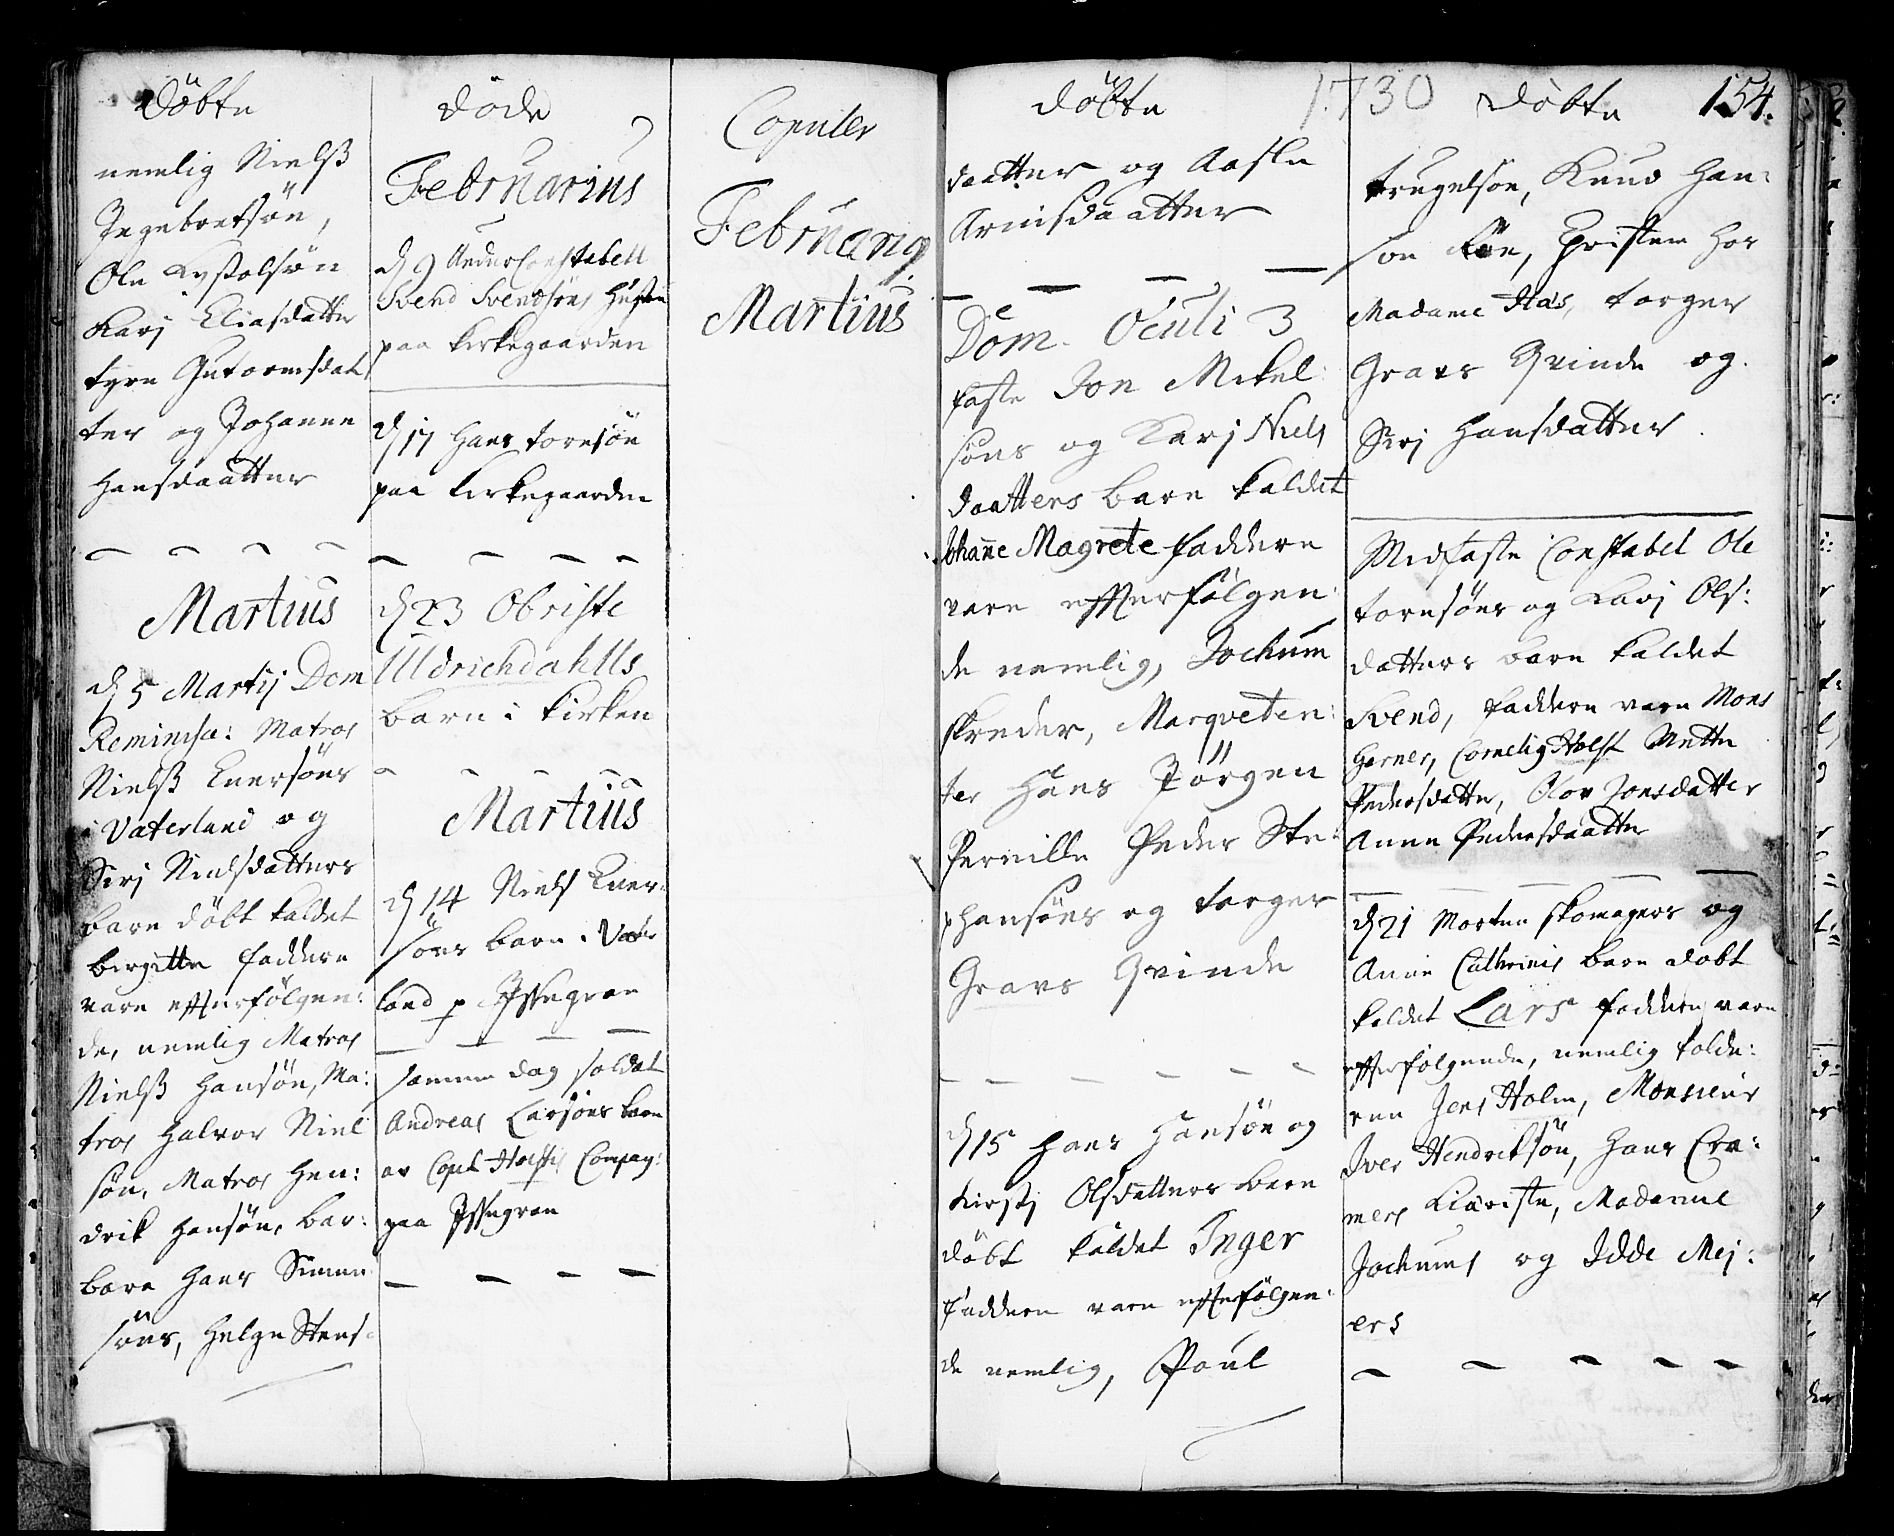 Döbte
nemlig Nielß
Ingebretsön,
Ole Kystolsön
Karj Eliasdatter
tyre Gutormsdat
ter og Johanne
Hansdaatter
Martius
d 5 Martij Dom
Reminisc: Matros
Nielß Euersöns
i Vaterland og
Sirj Nielsdatters
barn döbt kaldet
birgitte faddere
vare efterfölgen:
de, nemlig Matros
Nielß Hansön, Ma:
tros Halvor Niel
sön, Matros Hen:
drik Hansön, bar:
bara Hans Simen
söns, Helge Stens:
Döde
Februarius
d 9 Under Constabell
Svend Svendsöns Hustru
paa kirkegaarden
d 17 Hans toresön
paa kirkegaarden
d 23 Obriste
Uldrichdahlls
barn i kirken
Martius
d 14 Niels Euer:
söns barn i Vater
land p Ipsegran
samme dag soldat
Andreas Larsöns barn
av Capit Holstis Compag:
paa Ipsegran
Copuler
Februarij
Martius
Döbte
daatter og Aasle
Arnisdaatter
Dom. Oculi 3
faste Jon Mikel:
söns og Karj Niels
daatters barn kaldet
Johanne Magrete faddere
vare efterfölgen:
de nemlig, Jochum
skreder, Marqueten:
ter Hans Jörgen
Pernille Peder Ste:
phansöns og torger
Gravs Qvinde
d 15 Hans Hansön og
kirstj Olsdatters barn
döbt kaldet Inger
faddere vare efterfölgen:
de nemlig, Poul
1730
Döbte
154.
trugelsön, Knud Han:
sön, Cristen hos
Madame Has, torger
Gravs Qvinde og
Sirj Hansdatter
Midfaste Constabel Ole
toresöns og Karj Ols:
datters barn kaldet
Svend, faddere vare Mons
Garner, Cornelig Holst Mette
Pedersdatter, Olov Jonsdatter
Anne Pedersdaatter
d 21 Morten skomagers og
Anne Cathrinis barn döbt
kaldet Lars faddere vare
efterfölgende, nemlig tolde:
ren Jens Holm, Monsieur
Iver Hendriksön, Hans Cra:
mers Hiöriste, Madame
Jochums og Idde Mej:
ers